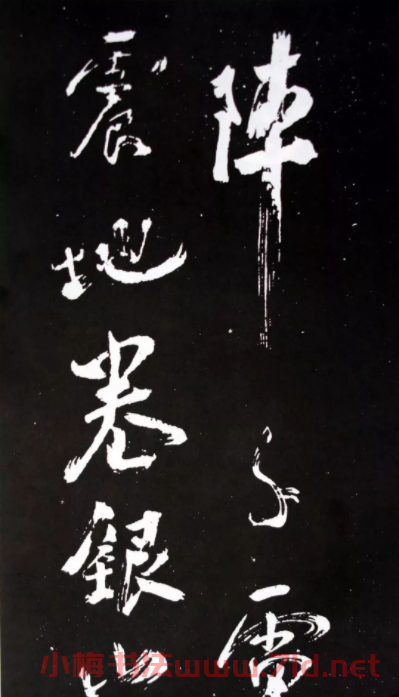 陣 雷
震地卷銀
小梅书法www.7ld.net